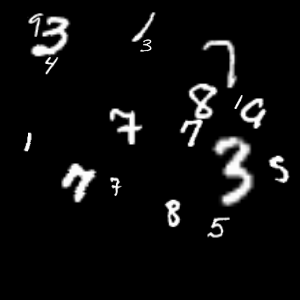 9 3 4
1 3
7
8 1 9
7 7
1
3
5
7 7
8 5